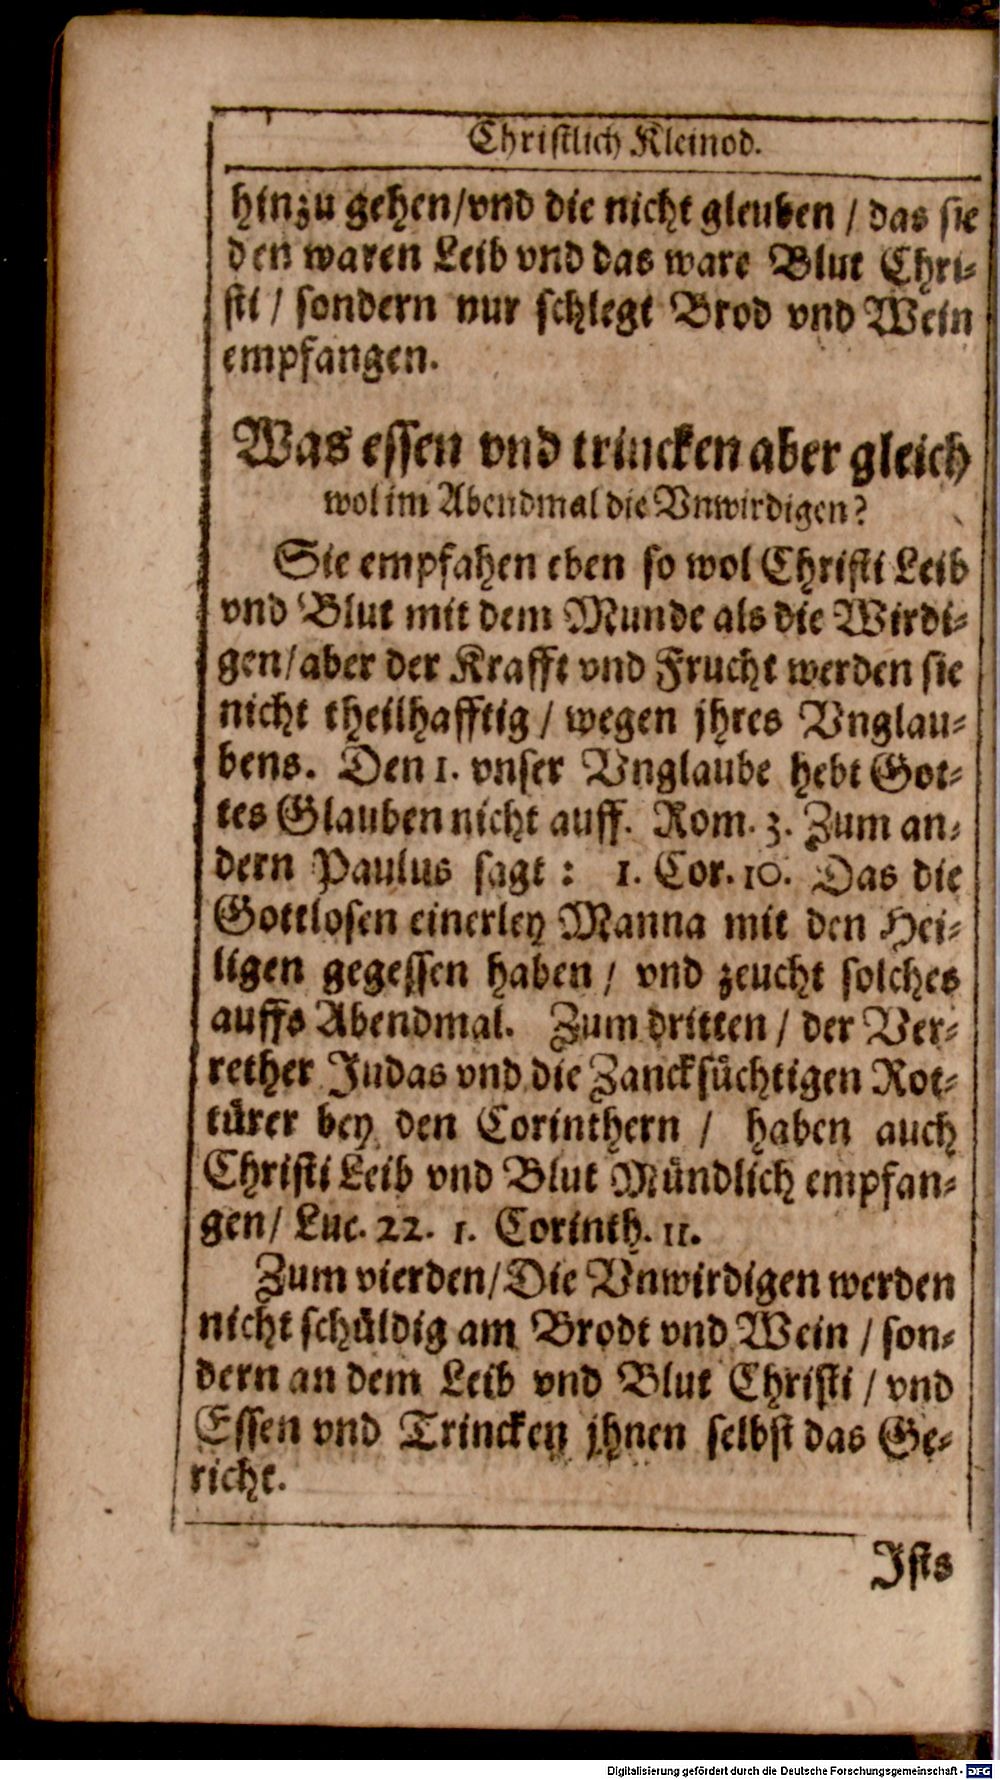 Christlich Kleinod.
hinzu gehen/vnd die nicht gleuben / das sie
den waren Leib vnd das ware Blut Chri-
sti / sondern nur schlegt Brod vnd Wein
empfangen.
Was essen vnd trincken aber gleich
wol im Abendmal die Vnwirdigen?
Sie empfahen eben so wol Christi Leib
vnd Blut mit dem Munde als die Wirdi-
gen/aber der Krafft vnd Frucht werden sie
nicht theilhafftig / wegen jhres Vnglau-
bens. Den 1. vnser Vnglaube hebt Got-
tes Glauben nicht auff. Rom. 3. Zum an-
dern Paulus sagt: 1. Cor. 10. Das die
Gottlosen einerley Manna mit den Hei-
ligen gegessen haben / vnd zeucht solches
auffs Abendmal. Zum dritten / der Ver-
rether Judas vnd die Zancksüchtigen Rot-
türer bey den Corinthern / haben auch
Christi Leib vnd Blut Mündlich empfan-
gen/ Luc. 22. 1. Corinth. 11.
Zum vierden/Die Vnwirdigen werden
nicht schüldig am Brodt vnd Wein / son-
dern an dem Leib vnd Blut Christi / vnd
Essen vnd Trincken jhnen selbst das Ge-
richt.
Ists
Digitalisierung gefördert durch die Deutsche Forschungsgemeinschaft - DFG